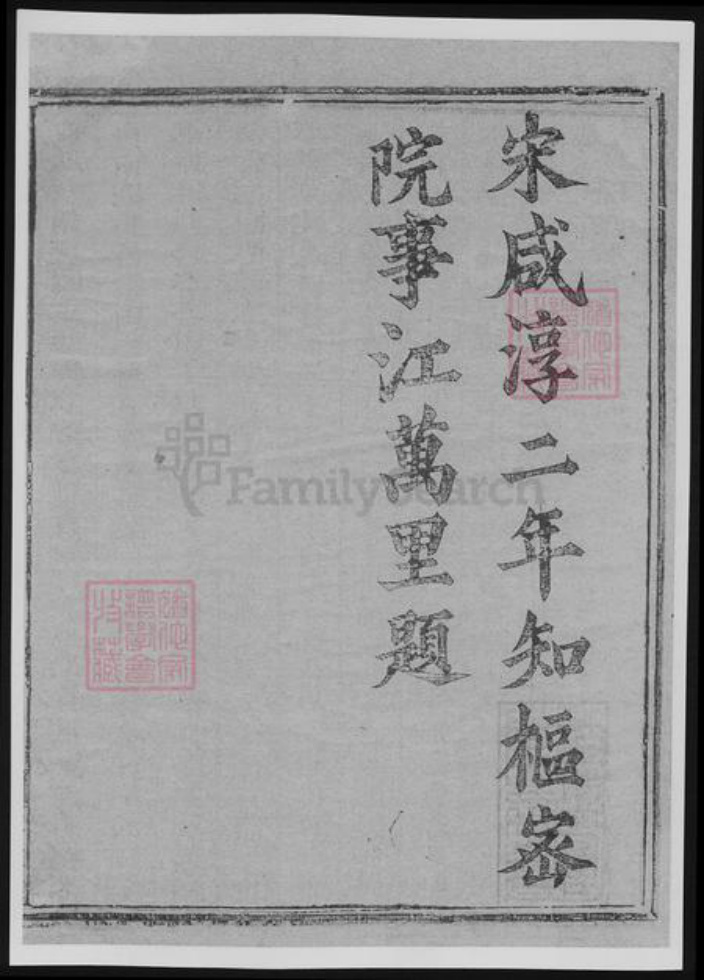 宋咸淳二年知樞密
院事江萬里題
FamilySearch